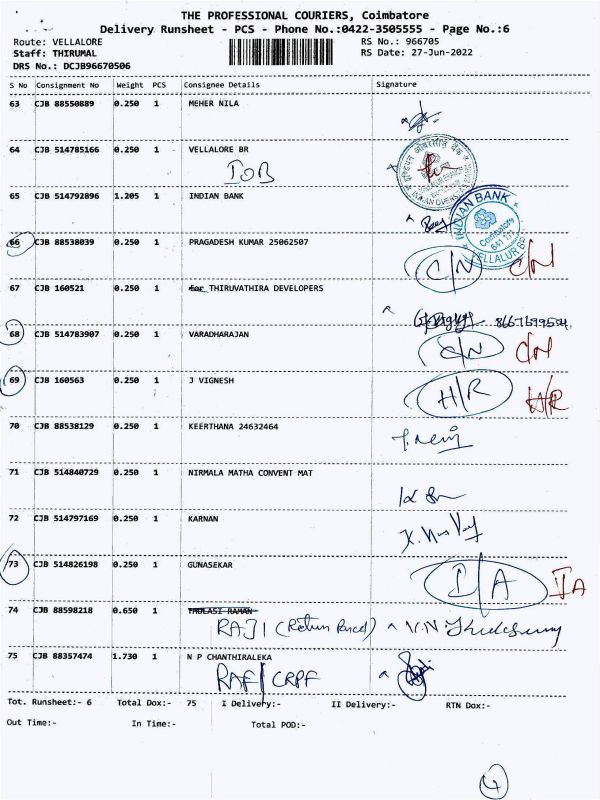 THE PROFESSIONAL COURIERS, Coimbatore
Delivery Runsheet - PCS - Phone No.:0422-3505555 - Page No.:6
Route: VELLALORE RS No.: 966705
Staff: THIRUMAL RS Date: 27-Jun-2022
DRS No.: DCJB96670506
S No Consignment No Weight PCS Consignee Details Signature
63 CJB 88550889 0.250 1 MEHER NILA
64 CJB 514785166 0.250 1 VELLALORE BR
IOB
65 CJB 514792896 1.205 1 INDIAN BANK
INDIAN BANK
Coimbatore
641 111
VELLALUR BR
66 CJB 88538039 0.250 1 PRAGADESH KUMAR 25062507
C/N C/N
67 CJB 160521 0.250 1 for THIRUVATHIRA DEVELOPERS
68 CJB 514783907 0.250 1 VARADHARAJAN
C/N C/N
69 CJB 160563 0.250 1 J VIGNESH
H/R H/R
70 CJB 88538129 0.250 1 KEERTHANA 24632464
71 CJB 514840729 0.250 1 NIRMALA MATHA CONVENT MAT
72 CJB 514797169 0.250 1 KARNAN
73 CJB 514826198 0.250 1 GUNASEKAR
I/A IA
74 CJB 88598218 0.650 1 THULASI RAMAN
RAJI (Return Parcel)
75 CJB 88357474 1.730 1 N P CHANTHIRALEKA
RAF/CRPF
Tot. Runsheet:- 6 Total Dox:- 75 I Delivery:- II Delivery:- RTN Dox:-
Out Time:- In Time:- Total POD:-
4